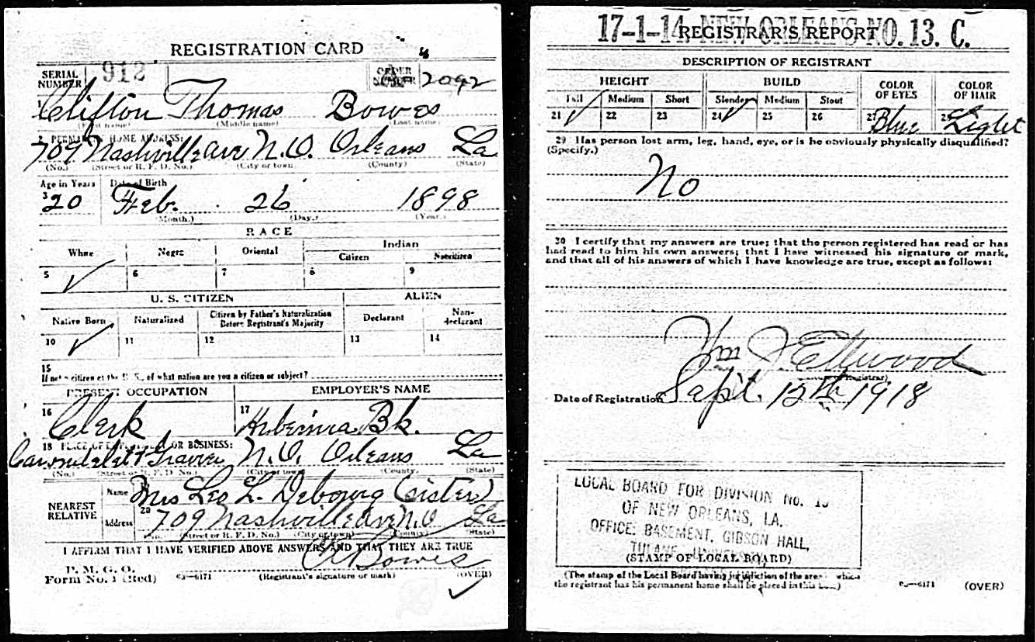 REGISTRATION CARD
SERIAL NUMBER 912
ORDER NUMBER 2092
1 Clifton Thomas Bowes
(First name) (Middle name) (Last name)
2 PERMANENT HOME ADDRESS:
709 Nashville Ave N.O. Orleans La
(No.) (Street or R. F. D. No.) (City or town) (County) (State)
Age in Years Date of Birth
3 20 Feb. 26 1898
(Month.) (Day.) (Year.)
RACE
White Negro Oriental Indian
Citizen Noncitizen
5 ✓ 6 7 8 9
U. S. CITIZEN ALIEN
Native Born Naturalized Citizen by Father's Naturalization Before Registrant's Majority Declarant Non-declarant
10 ✓ 11 12 13 14
15
If not a citizen of the U. S., of what nation are you a citizen or subject?
PRESENT OCCUPATION EMPLOYER'S NAME
16 Clerk 17 Hibernia Bk.
18 PLACE OF EMPLOYMENT OR BUSINESS:
N.O. Orleans La
(No.) (Street or R. F. D. No.) (City or town) (County) (State)
NEAREST RELATIVE
Name Mrs Leo L. Debourg (sister)
Address 20 709 Nashville Ave N.O La
(No.) (Street or R. F. D. No.) (City or town) (County) (State)
I AFFIRM THAT I HAVE VERIFIED ABOVE ANSWERS AND THAT THEY ARE TRUE
Bowes
P. M. G. O.
Form No. 1 (Red) 03—6171 (Registrant's signature or mark) (OVER)
17-1-14 NEW ORLEANS NO. 13. C.
REGISTRAR'S REPORT
DESCRIPTION OF REGISTRANT
HEIGHT BUILD COLOR OF EYES COLOR OF HAIR
Tall Medium Short Slender Medium Stout
21 ✓ 22 23 24 ✓ 25 26 27 Blue 28 Light
29 Has person lost arm, leg, hand, eye, or is he obviously physically disqualified?
(Specify.)
No
30 I certify that my answers are true; that the person registered has read or has
had read to him his own answers; that I have witnessed his signature or mark,
and that all of his answers of which I have knowledge are true, except as follows:
Wm J. Ellwood
(Registrar)
Date of Registration Sept. 12th 1918
LOCAL BOARD FOR DIVISION No. 13
OF NEW ORLEANS, LA.
OFFICE: BASEMENT, GIBSON HALL,
TULANE UNIVERSITY
(STAMP OF LOCAL BOARD)
(The stamp of the Local Board having jurisdiction of the area in which
the registrant has his permanent home shall be placed in this box.)
03—6171 (OVER)